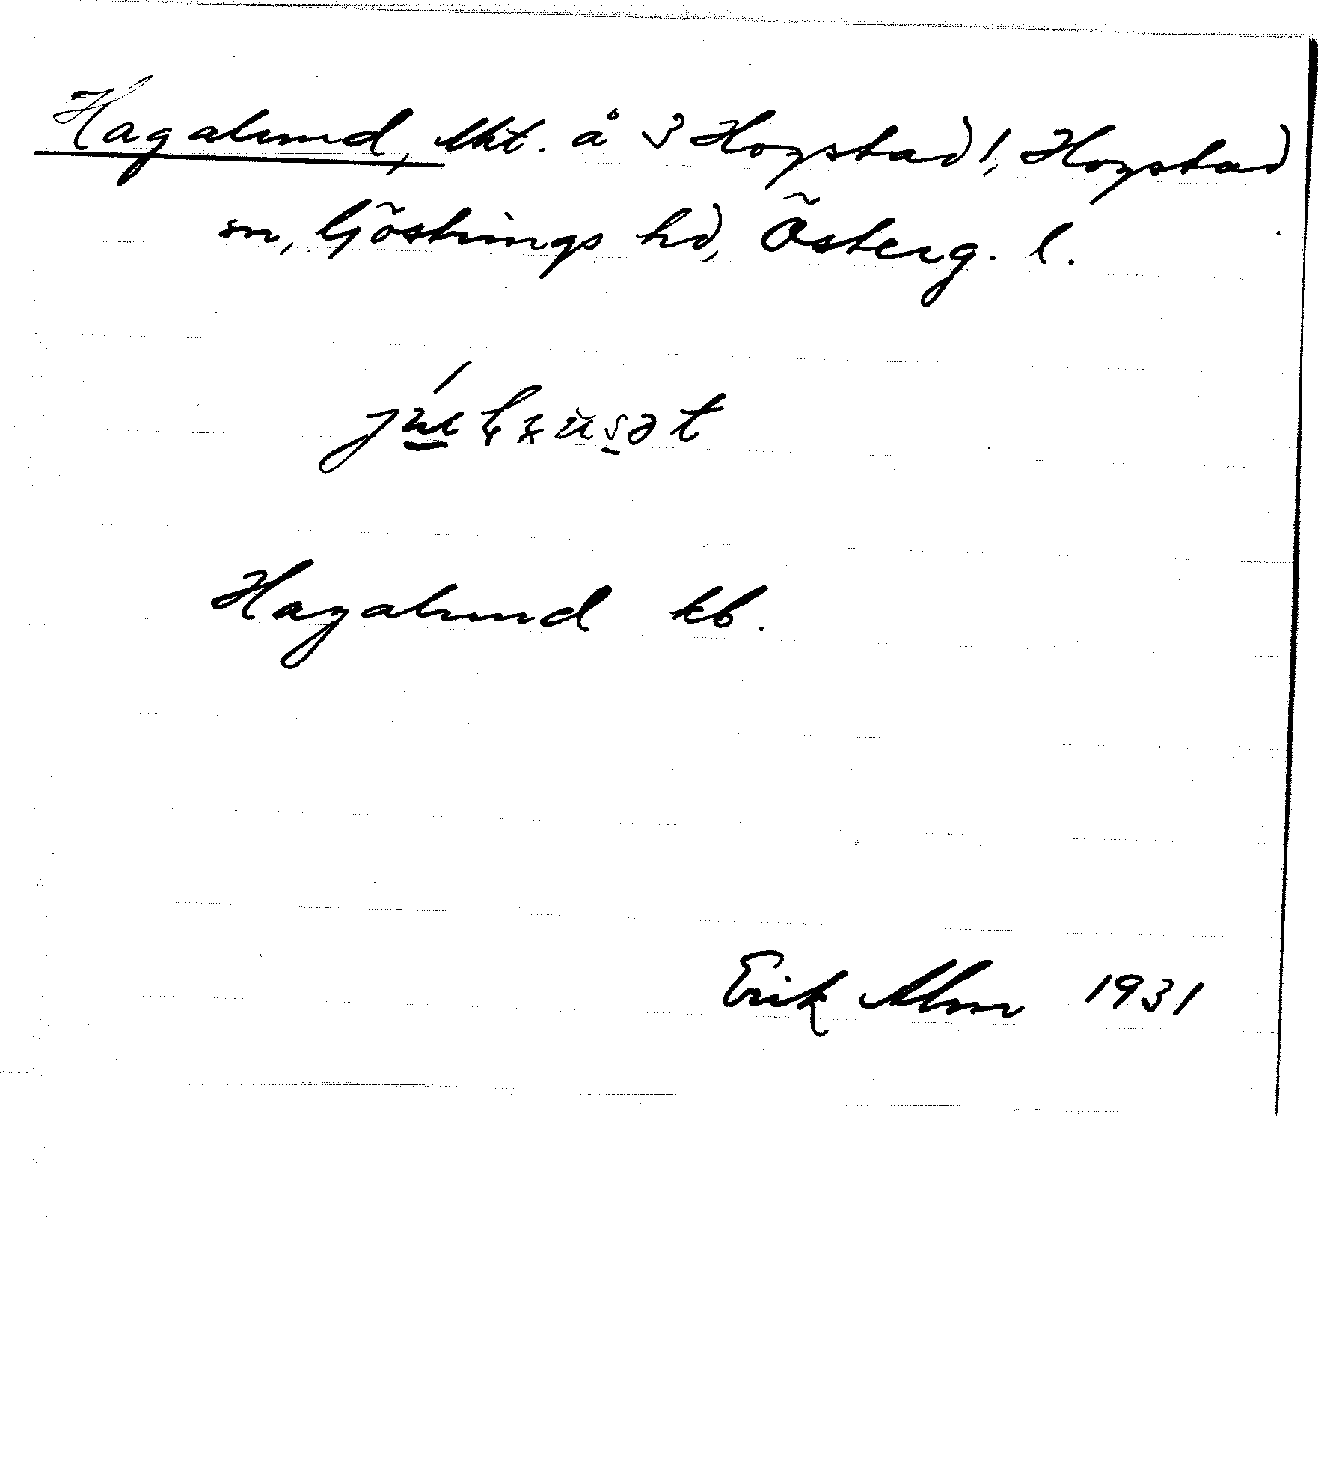 Hagalund, lht. å 3 Hogstad 1, Hogstad
sn, Göstrings hd, Österg. l.
Hagalund kb.
Erik Alm 1931